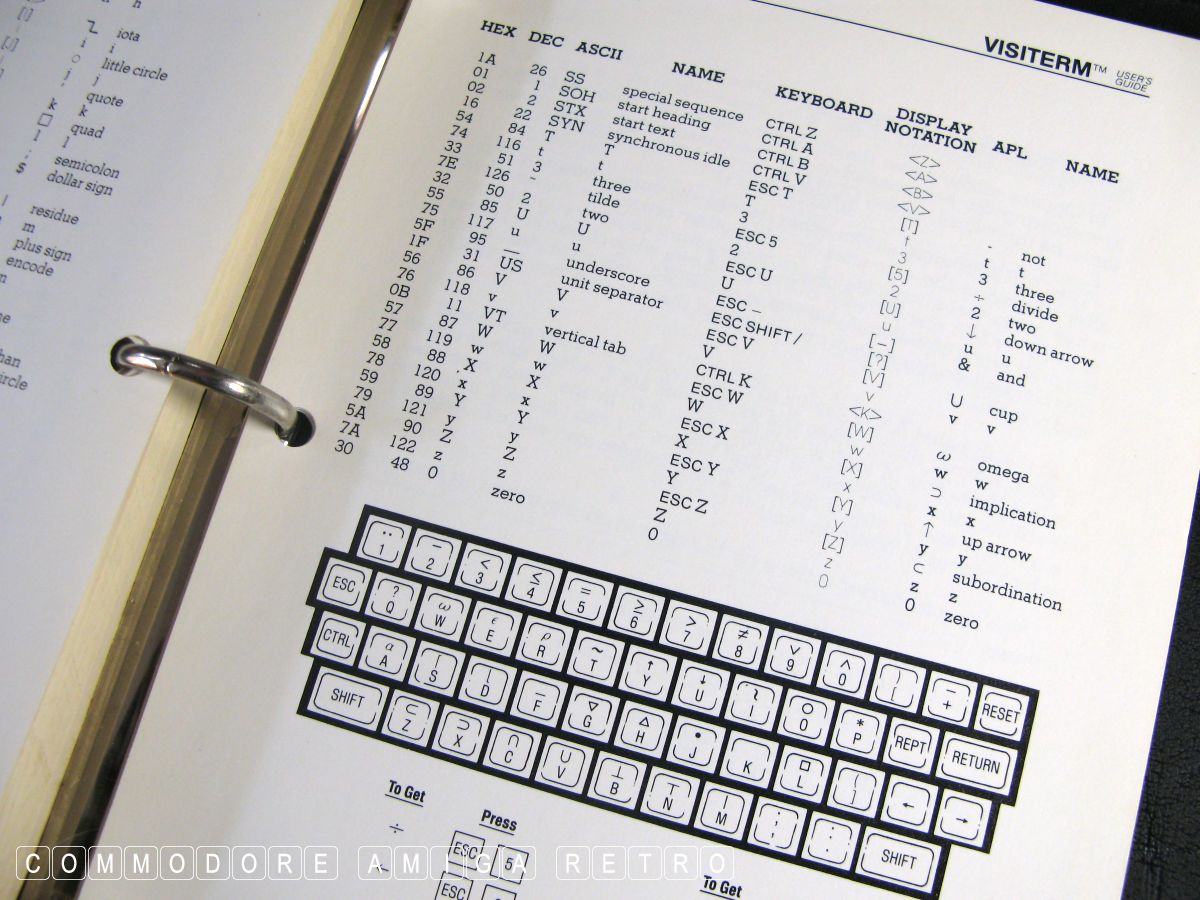 h
iota
i i
○ little circle
j j
quote
k k
□ quad
l l
; semicolon
$ dollar sign
| residue
m
plus sign
encode
han
ircle
VISITERM™ USER'S GUIDE
HEX DEC ASCII NAME KEYBOARD DISPLAY NOTATION APL NAME
1A 26 SS special sequence CTRL Z <Z>
01 1 SOH start heading CTRL A <A>
02 2 STX start text CTRL B <B>
16 22 SYN synchronous idle CTRL V <V>
54 84 T T ESC T [T] ~ not
74 116 t t T t t t
33 51 3 three 3 3 3 three
7E 126 ~ tilde ESC 5 [5] ÷ divide
32 50 2 two 2 2 2 two
55 85 U U ESC U [U] ↓ down arrow
75 117 u u U u u u
5F 95 _ underscore ESC _ [—] & and
1F 31 US unit separator ESC SHIFT / [?]
56 86 V V ESC V [V] ∪ cup
76 118 v v V v v v
0B 11 VT vertical tab CTRL K <K>
57 87 W W ESC W [W] ω omega
77 119 w w W w w w
58 88 X X ESC X [X] ⊃ implication
78 120 x x X x x x
59 89 Y Y ESC Y [Y] ↑ up arrow
79 121 y y Y y y y
5A 90 Z Z ESC Z [Z] ⊂ subordination
7A 122 z z Z z z z
30 48 0 zero 0 0 0 zero
¨ 1 ¯ 2 < 3 ≤ 4 = 5 ≥ 6 > 7 ≠ 8 ∨ 9 ∧ 0 ] [ − + RESET
ESC ? Q ω W ϵ E ρ R ~ T ↑ Y ↓ U } I ○ O * P REPT RETURN
CTRL α A ⌈ S ⌊ D _ F ∇ G ∆ H • J K □ L ( ) ← →
SHIFT ⊂ Z ⊃ X ∩ C ∪ V ⊥ B ⊤ N | M ; , : . SHIFT
To Get Press
÷ ESC 5
ESC
To Get
COMMODORE AMIGA RETRO